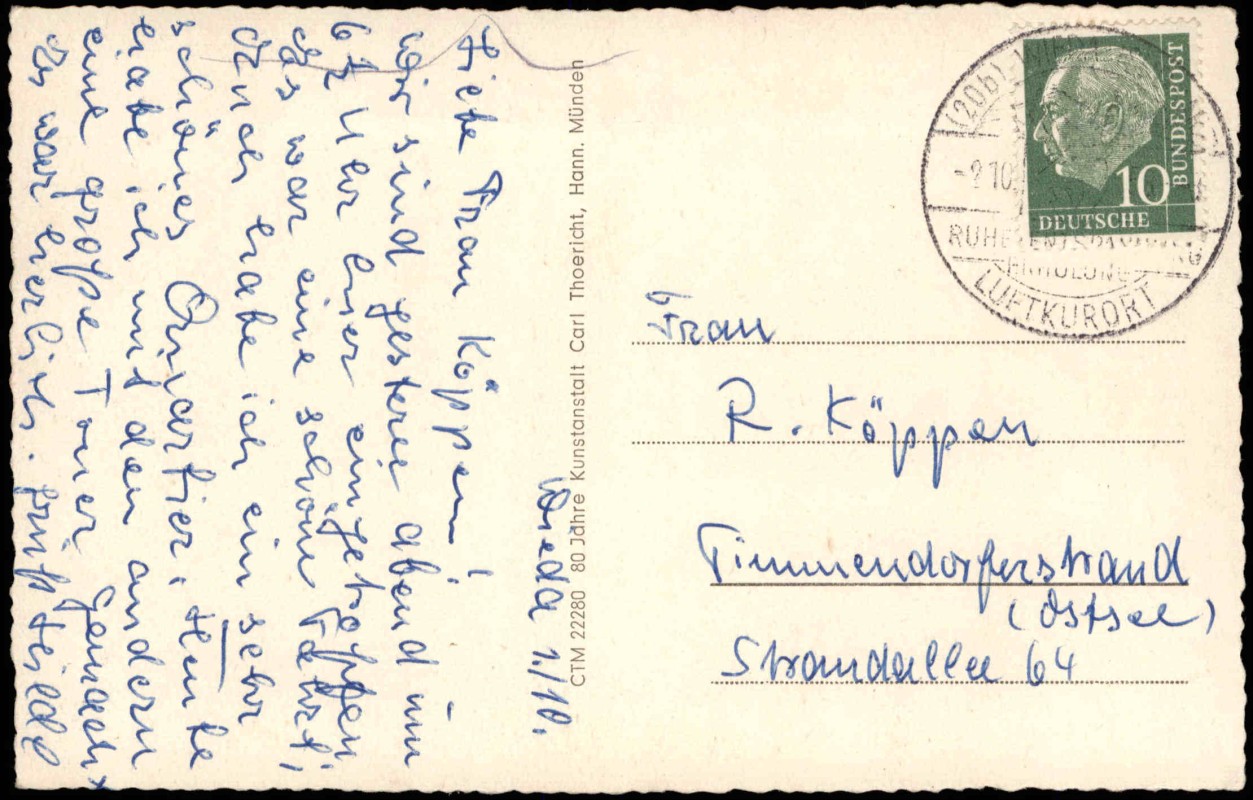 Wieda 1./10.
Liebe Frau Köppen!
Wir sind gestern abend um
6½ Uhr hier eingetroffen,
es war eine schöne Fahrt,
auch habe ich ein sehr
schönes Quartier. Heute
habe ich mit den andern
eine große Tour gemacht
es war herrlich. Gruß Hilde
CTM 22280 80 Jahre Kunstanstalt Carl Thoericht, Hann. Münden
10
DEUTSCHE
BUNDESPOST
(20b)
-2.10
RUHE
ERHOLUNG
LUFTKURORT
Frau
R. Köppen
Timmendorferstrand
(Ostsee)
Strandallee 64